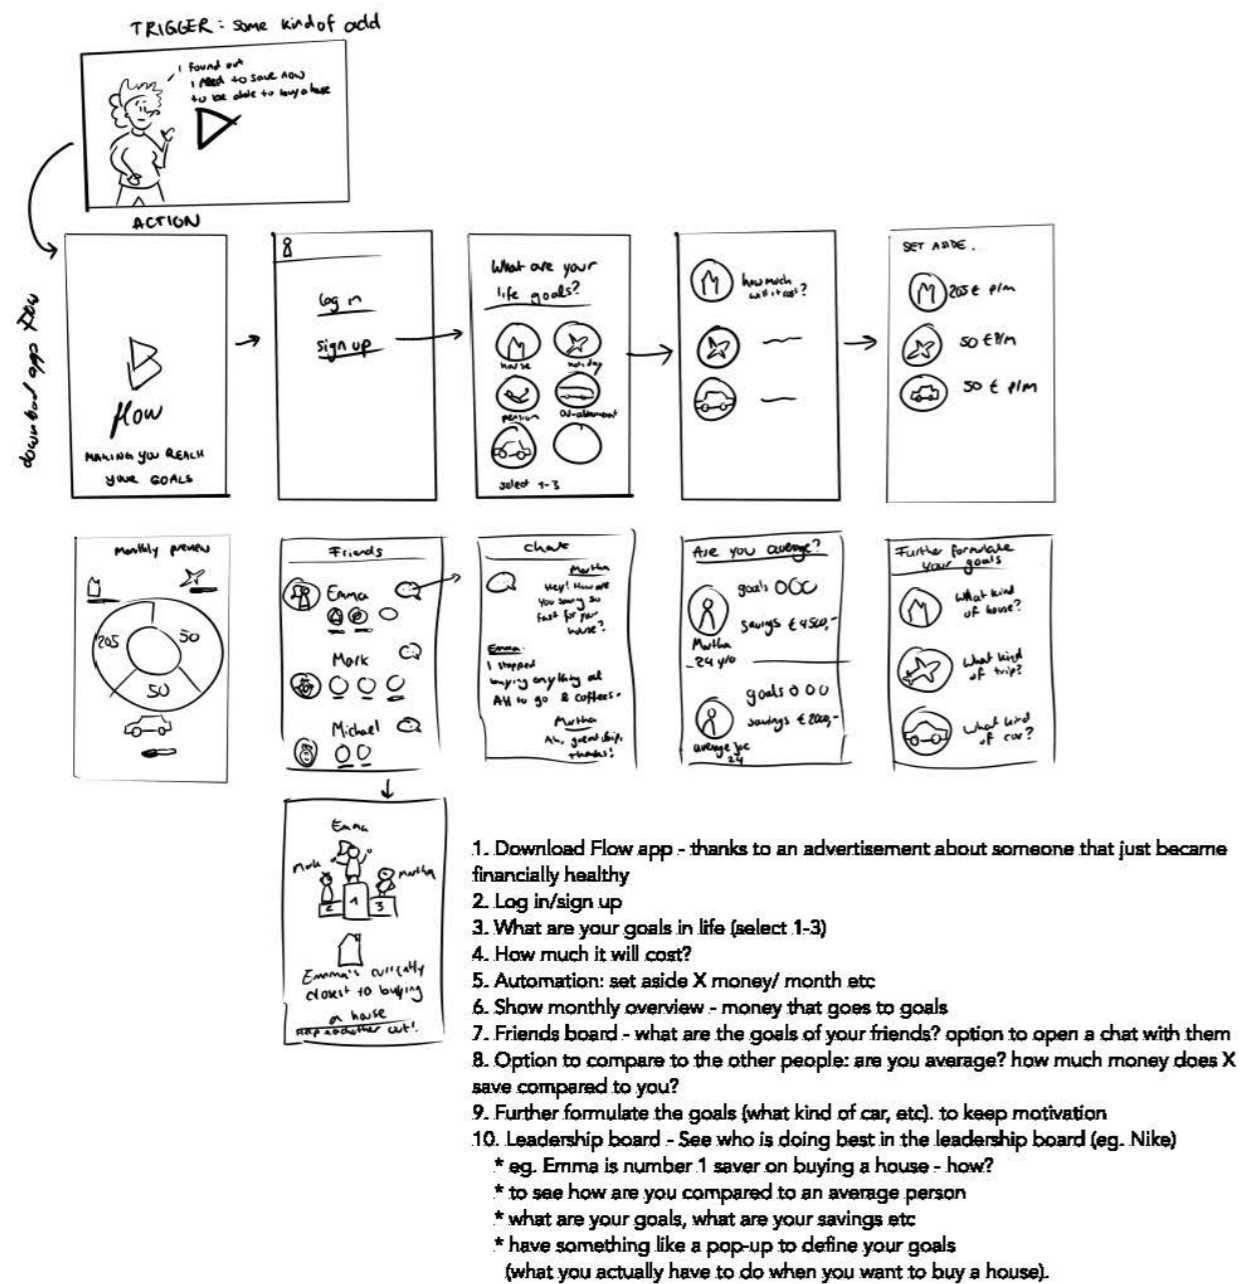 TRIGGER: some kind of add
I found out
I need to save now
to be able to buy a house
ACTION
download app flow
flow
MAKING YOU REACH
YOUR GOALS
log in
sign up
What are your
life goals?
house
holiday
pension
car
select 1-3
how much
will it cost?
SET ASIDE.
205 € p/m
50 € P/m
50 € p/m
Monthly preview
205
50
50
Friends
Emma
Mark
Michael
Chat
Martha
Hey! How are
you saving so
fast for your
house?
Emma
I stopped
buying anything at
AH to go & coffees.
Martha
Ah, great tip,
thanks!
Are you average?
goals
savings € 4500,-
Martha
24 y/o
goals
savings € 2000,-
average joe
24
Further formulate
your goals
What kind
of house?
What kind
of trip?
What kind
of car?
Emma
Mark
Martha
2 1 3
Emmma's currently
closest to buying
a house
help eachother out!
1. Download Flow app - thanks to an advertisement about someone that just became
financially healthy
2. Log in/sign up
3. What are your goals in life (select 1-3)
4. How much it will cost?
5. Automation: set aside X money/ month etc
6. Show monthly overview - money that goes to goals
7. Friends board - what are the goals of your friends? option to open a chat with them
8. Option to compare to the other people: are you average? how much money does X
save compared to you?
9. Further formulate the goals (what kind of car, etc). to keep motivation
10. Leadership board - See who is doing best in the leadership board (eg. Nike)
* eg. Emma is number 1 saver on buying a house - how?
* to see how are you compared to an average person
* what are your goals, what are your savings etc
* have something like a pop-up to define your goals
(what you actually have to do when you want to buy a house).